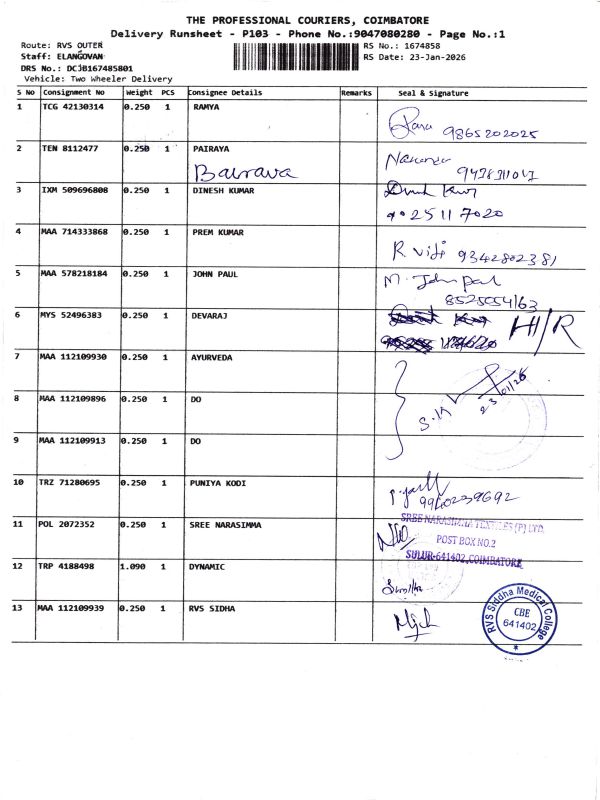 THE PROFESSIONAL COURIERS, COIMBATORE
Delivery Runsheet - P103 - Phone No.:9047080280 - Page No.:1
Route: RVS OUTER
RS No.: 1674858
Staff: ELANGOVAN
RS Date: 23-Jan-2026
DRS No.: DCJB167485801
Vehicle: Two Wheeler Delivery
S No Consignment No Weight PCS Consignee Details Remarks Seal & Signature
1 TCG 42130314 0.250 1 RAMYA
9865202025
2 TEN 8112477 0.250 1 PAIRAYA
Bairava
3 IXM 509696808 0.250 1 DINESH KUMAR
9025117020
4 MAA 714333868 0.250 1 PREM KUMAR
R. Viji 9342802381
5 MAA 578218184 0.250 1 JOHN PAUL M. John paul
8525054163
6 MYS 52496383 0.250 1 DEVARAJ H/R
7 MAA 112109930 0.250 1 AYURVEDA
23/01/26
8 MAA 112109896 0.250 1 DO
9 MAA 112109913 0.250 1 DO
10 TRZ 71280695 0.250 1 PUNIYA KODI
9940239692
11 POL 2072352 0.250 1 SREE NARASIMMA
SREE NARASIMMA TEXTILES (P) LTD,
POST BOX NO.2
SULUR-641402, COIMBATORE
12 TRP 4188498 1.090 1 DYNAMIC
13 MAA 112109939 0.250 1 RVS SIDHA
RVS Siddha Medical College
CBE
641402